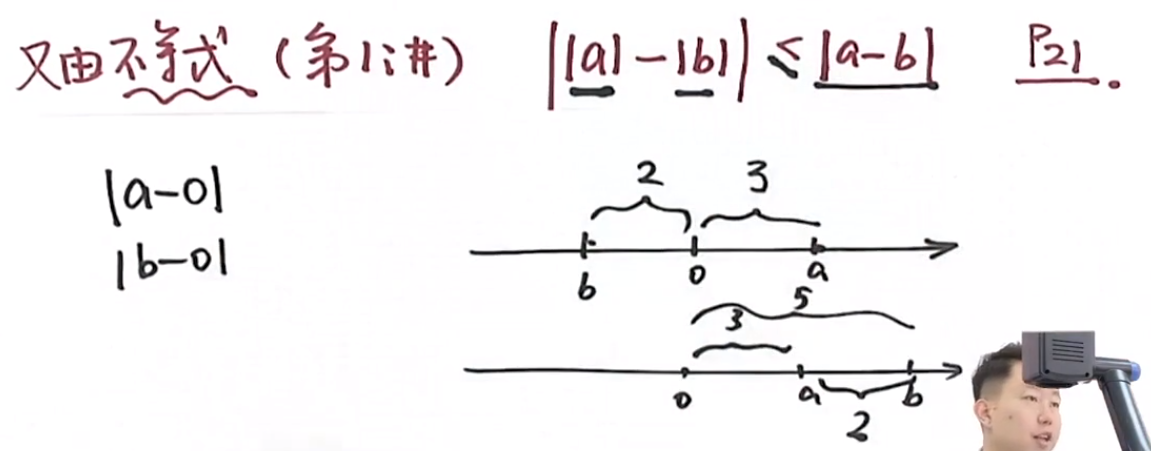 又由不等式（第1讲） ||a|-|b|| ≤ |a-b| P21.
|a-0|
|b-0|
2 3
b 0 a
5
3
0 a b
2